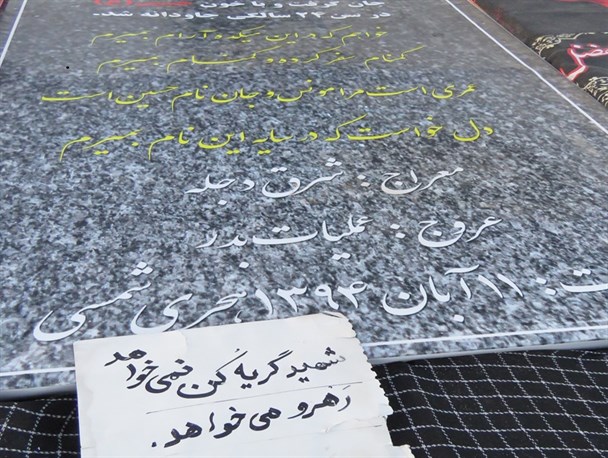 جان گرفت و با خون
در سن ۲۲ سالگی جاودانه شد.
خواهم که در این میکده آرام بمیرم
گمنام سفر کرده و گمنام بمیرم
عمری است مرا مونس و جان نام حسین است
دل خواست که در سایه این نام بمیرم
معراج : شرق دجله
عروج : عملیات بدر
ت: ۱۱ آبان ۱۳۹۴ هجری شمسی
شهید گریه کُن نمی خواهد
رَهرو می خواهد.